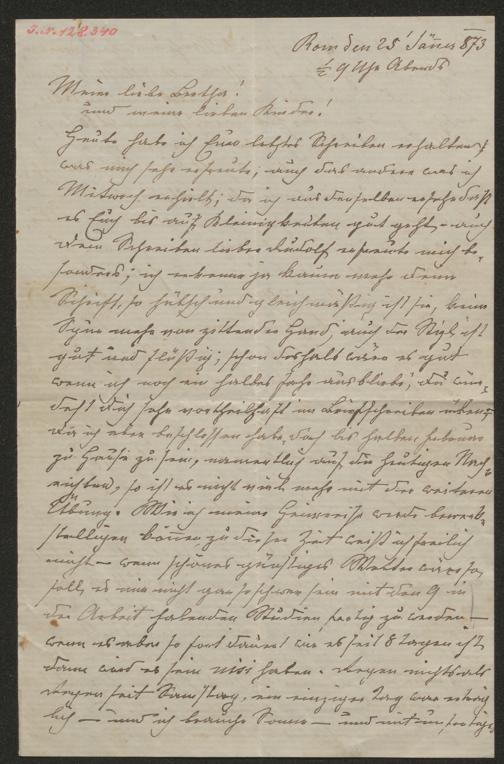 I.N. 128.340
Rom den 25' Jänner 873
½ 9 Uhr Abends
Meine liebe Bertha!
und meine lieben Kinder!
Heute habe ich Euer letztes Schreiben erhalten,
was mich sehr erfreute; auch das andere was ich
Mitwoch erhielt; da ich aus denselben ersehe daß
es Euch bis auf Kleinigkeiten gut geht, auch
Dein Schreiben lieber Rudolf erfreute mich be-
sonders; ich erkenne ja kaum mehr deine
Schrift, so hübsch und gleichmäßig ist sie, keine
Spur mehr von zitternder Hand, auch der Styl ist
gut und flüßig; schon deshalb wäre es gut
wenn ich noch ein halbes Jahr ausbliebe, Du wür-
dest Dich sehr vortheilhaft im Briefschreiben üben,
da ich aber beschlossen habe, doch bis halben Februar
zu Hause zu sein, namentlich auf die heutigen Nach-
richten, so ist es nicht viel mehr mit der weiteren
Übung. Wie ich meine Heimreise werde bewerk-
stelligen können zu dieser Zeit weiß ich freilich
nicht — wenn schönes günstiges Wetter wäre so
soll es mir nicht gar so schwer sein mit den 9 in
der Arbeit habenden Studien fertig zu werden —
wenn es aber so fort dauert wie es seit 8 Tagen ist
dann wird es sein haben. Regen nichts als
Regen seit Samstag, ein einziger Tag war erträg-
lich — und ich brauche Sonne — und mit